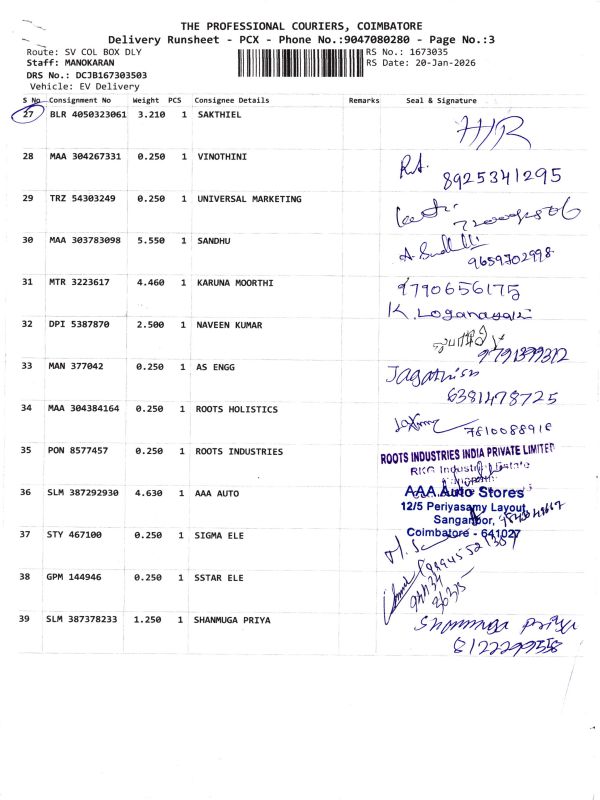 THE PROFESSIONAL COURIERS, COIMBATORE
Delivery Runsheet - PCX - Phone No.:9047080280 - Page No.:3
Route: SV COL BOX DLY
RS No.: 1673035
Staff: MANOKARAN
RS Date: 20-Jan-2026
DRS No.: DCJB167303503
Vehicle: EV Delivery
S No. Consignment No Weight PCS Consignee Details Remarks Seal & Signature
27 BLR 4050323061 3.210 1 SAKTHIEL H/R
28 MAA 304267331 0.250 1 VINOTHINI
8925341295
29 TRZ 54303249 0.250 1 UNIVERSAL MARKETING
30 MAA 303783098 5.550 1 SANDHU
9659702998
31 MTR 3223617 4.460 1 KARUNA MOORTHI 9790656175
K. Loganayaki
32 DPI 5387870 2.500 1 NAVEEN KUMAR
33 MAN 377042 0.250 1 AS ENGG Jagathish
6381478725
34 MAA 304384164 0.250 1 ROOTS HOLISTICS
7810088918
35 PON 8577457 0.250 1 ROOTS INDUSTRIES ROOTS INDUSTRIES INDIA PRIVATE LIMITED
RKG Industrial Estate
36 SLM 387292930 4.630 1 AAA AUTO AAA Auto Stores
12/5 Periyasamy Layout,
Sanganoor,
Coimbatore - 641027
37 STY 467100 0.250 1 SIGMA ELE
38 GPM 144946 0.250 1 SSTAR ELE
39 SLM 387378233 1.250 1 SHANMUGA PRIYA Shanmuga Priya
8122299558